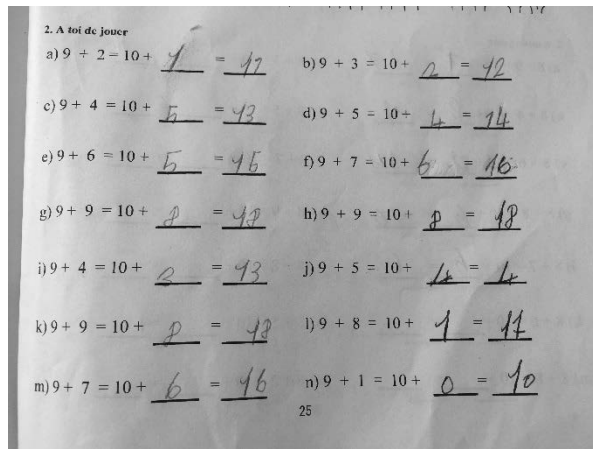 2. A toi de jouer
a) 9 + 2 = 10 + 1 = 12 b) 9 + 3 = 10 + 2 = 12
c) 9 + 4 = 10 + 5 = 13 d) 9 + 5 = 10 + 4 = 14
e) 9 + 6 = 10 + 5 = 15 f) 9 + 7 = 10 + 6 = 16
g) 9 + 9 = 10 + 8 = 18 h) 9 + 9 = 10 + 8 = 18
i) 9 + 4 = 10 + 3 = 13 j) 9 + 5 = 10 + 4 = 4
k) 9 + 9 = 10 + 8 = 18 l) 9 + 8 = 10 + 1 = 17
m) 9 + 7 = 10 + 6 = 16 n) 9 + 1 = 10 + 0 = 10
25